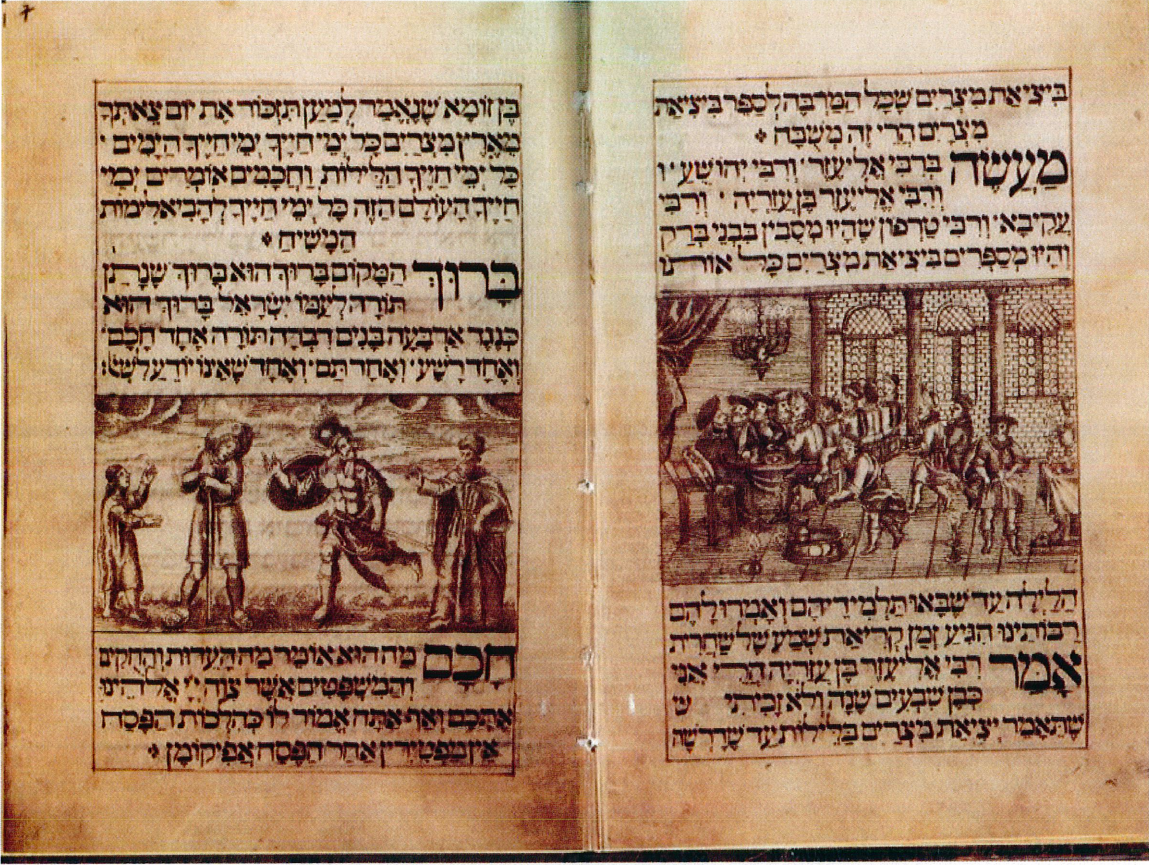 בִּיצִיאַת מִצְרַיִם שֶׁכָּל הַמַּרְבֶּה לְסַפֵּר בִּיצִיאַת
מִצְרַיִם הֲרֵי זֶה מְשֻׁבָּח
מַעֲשֶׂה בְּרַבִּי אֱלִיעֶזֶר וְרַבִּי יְהוֹשֻׁעַ ו
וְרַבִּי אֶלְיעֶזֶר בֶּן עֲזַרְיָה וְרַבִּי
עֲקִיבָא וְרַבִּי טַרְפוֹן שֶׁהָיוּ מְסֻבִּין בִּבְנֵי בְּרַק
וְהָיוּ מְסַפְּרִים בִּיצִיאַת מִצְרַיִם כָּל אותו
הַלַּיְלָה עַד שֶׁבָּאוּ תַּלְמִידֵיהֶם וְאָמְרוּ לָהֶם
רַבּוֹתֵינוּ הִגִּיעַ זְמַן קְרִיאַת שְׁמַע שֶׁל שַׁחֲרִית
אָמַר רַבִּי אֶלִיעֶזֶר בֶּן עֲזַרְיָה הֲרֵי אֲנִי
כְּבֶן שִׁבְעִים שָׁנָה וְלֹא זָכִיתִי ש
שֶׁתֵּאָמֵר יְצִיאַת מִצְרַיִם בַּלֵּילוֹת עַד שֶׁדְּרָשָׁהּ
בֶּן זוֹמָא שֶׁנֶּאֱמַר לְמַעַן תִּזְכּוֹר אֶת יוֹם צֵאתְךָ
מֵאֶרֶץ מִצְרַיִם כָּל יְמֵי חַיֶּיךָ יְמֵי חַיֶּיךָ הַיָּמִים
כָּל יְמֵי חַיֶּיךָ הַלֵּילוֹת וַחֲכָמִים אוֹמְרִים יְמֵי
חַיֶּיךָ הָעוֹלָם הַזֶּה כָּל יְמֵי חַיֶּיךָ לְהָבִיא לִימוֹת
הַמָּשִׁיחַ
בָּרוּךְ הַמָּקוֹם בָּרוּךְ הוּא בָּרוּךְ שֶׁנָּתַן
תּוֹרָה לְעַמּוֹ יִשְׂרָאֵל בָּרוּךְ הוּא
כְּנֶגֶד אַרְבָּעָה בָנִים דִּבְּרָה תוֹרָה אֶחָד חָכָם
וְאֶחָד רָשָׁע וְאֶחָד תָּם וְאֶחָד שֶׁאֵינוֹ יוֹדֵעַ לִשְׁ׃
חָכָם מַה הוּא אוֹמֵר מָה הָעֵדוּת וְהַחֻקִּים
וְהַמִּשְׁפָּטִים אֲשֶׁר צִוָּה יְיָ אֱלֹהֵינוּ
אֶתְכֶם וְאַף אַתָּה אֱמוֹר לוֹ כְּהִלְכוֹת הַפֶּסַח
אֵין מַפְטִירִין אַחַר הַפֶּסַח אֲפִיקוֹמָן